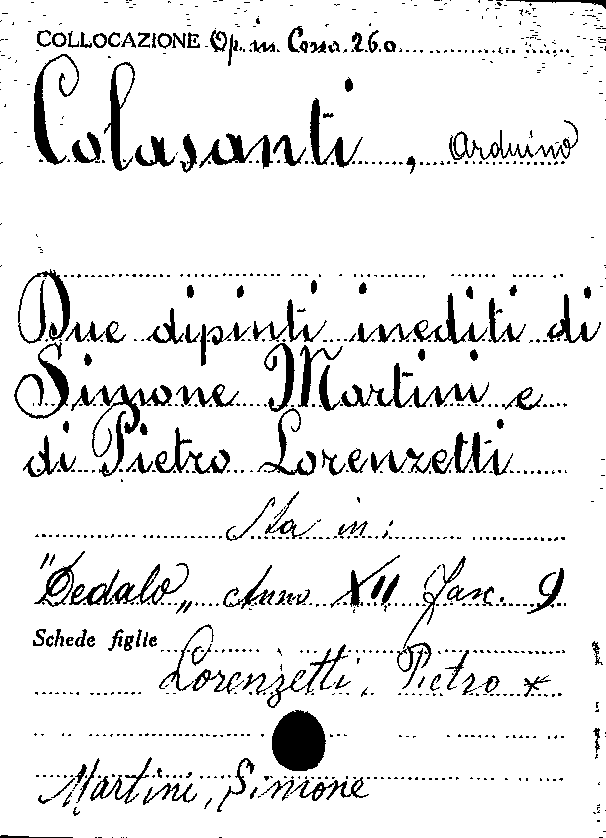 COLLOCAZIONE Op. in Cons. 260
Colasanti, Arduino
Due dipinti inediti di
Simone Martini e
di Pietro Lorenzetti
Sta in:
"Dedalo„ Anno XII Fasc. 9
Schede figlie
Lorenzetti, Pietro ×
Martini, Simone